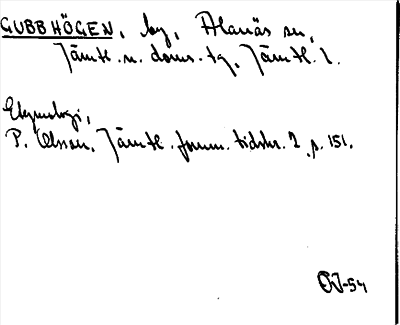 GUBBHÖGEN, by, Alanäs sn,
Jämtl. n. doms. tg, Jämtl. l.
Etymologi,
P. Olsson, Jämtl. forum. tidskr. 2, p. 151.
-54